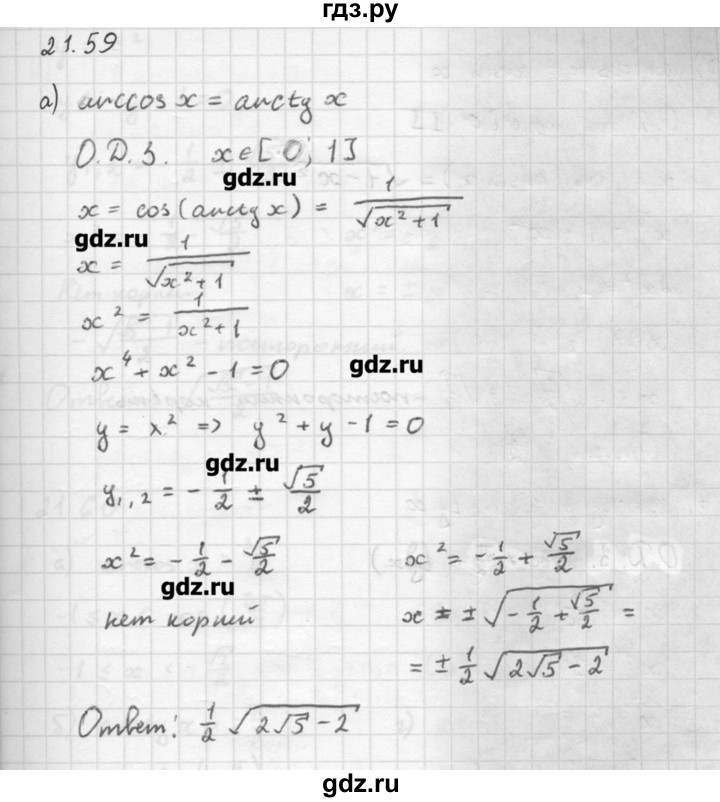 гдз.ру
21.59
а) arccos x = arctg x
О.Д.З. x∈[0; 1]
gdz.ru
x = cos(arctg x) = 1/√(x²+1)
gdz.ru
x = 1/√(x²+1)
x² = 1/(x²+1)
x⁴ + x² - 1 = 0
gdz.ru
y = x² => y² + y - 1 = 0
gdz.ru
y₁,₂ = - 1/2 ± √5/2
x² = - 1/2 - √5/2
x² = - 1/2 + √5/2
gdz.ru
нет корней
x = ± √(- 1/2 + √5/2) =
= ± 1/2 √(2√5 - 2)
Ответ: 1/2 √(2√5 - 2)
gdz.ru